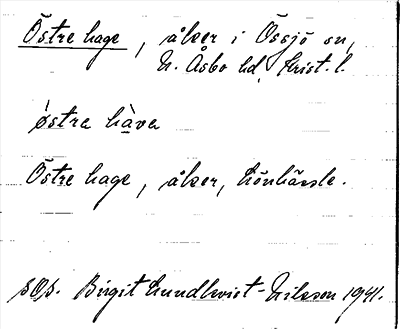 Östre hage, åker i Össjö sn,
N. Åsbo hd, Krist. l.
østre hàva
Östre hage, åker, Lönhässle.
SOA. Birgit Lundkvist-Nilsson 1941.